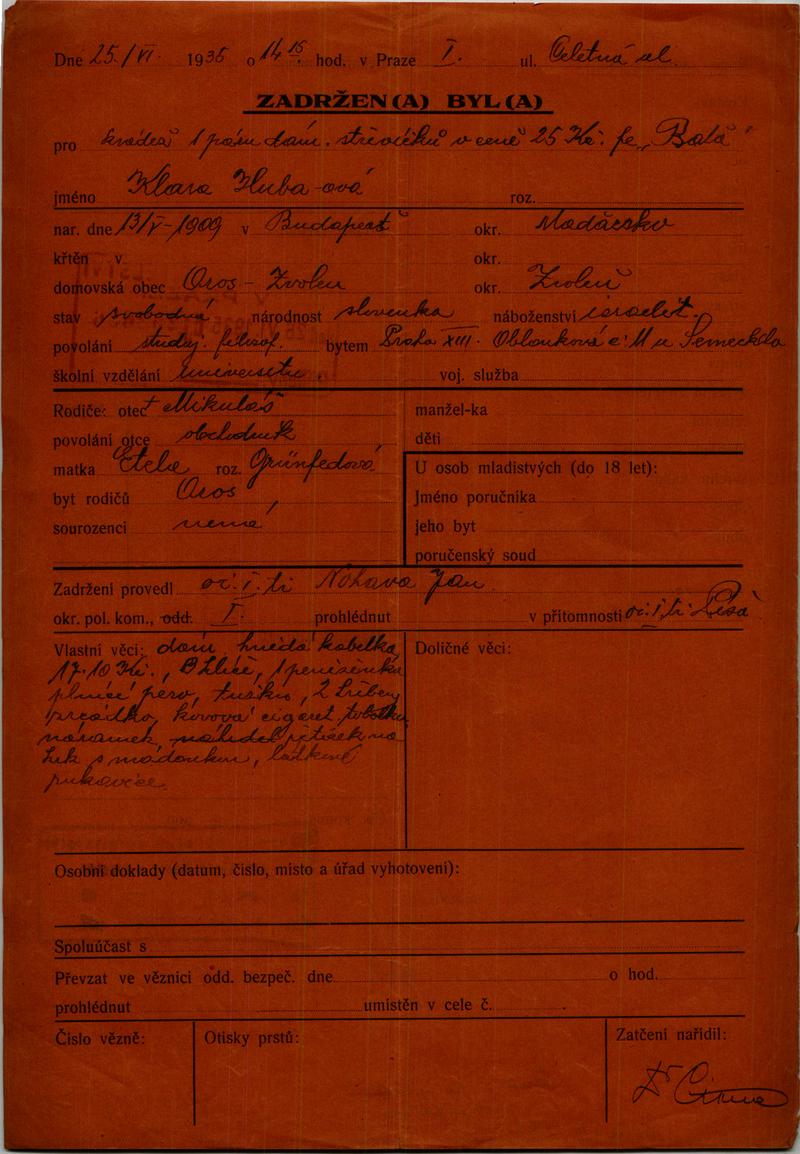 Dne 25./VI. 1935 o 14 15 hod. v Praze I. ul. Celetná ul.
ZADRŽEN(A) BYL(A)
pro krádež 1 páru dám. střevíčků v ceně 25 Kč. fe „Baťa"
jméno Klara Huba-ová roz.
nar. dne 13/V-1909 v Budapešť okr. Maďarsko
křtěn v okr.
domovská obec Oros-Zvolen okr. Zvolen
stav svobodná národnost slovenka náboženství israelit.
povolání studuj. filosof. bytem Praha XIII. Oblouková č. 11 u Semeckého
školní vzdělání universitu. voj. služba
Rodiče: otec Mikuláš manžel-ka
povolání otce obchodník děti
matka Etela roz. Grünfedová U osob mladistvých (do 18 let):
byt rodičů Oros Jméno poručníka
sourozenci nemá jeho byt
poručenský soud
Zadržení provedl I. tř. Nohava Jan
okr. pol. kom., odd. I. prohlédnut v přítomnosti I. tř.
Vlastní věci: dám. hnědá kabelka, Doličné věci:
17.10 Kč., klíče, 1 peněženka
plnící pero, tužku, 2 hřeben,
zrcádko, kovová cigaret. tobolka
náramek, řetízek na
krk s madonkou, látkové
rukavice.
Osobní doklady (datum, číslo, místo a úřad vyhotovení):
Spoluúčast s
Převzat ve věznici odd. bezpeč. dne o hod.
prohlédnut umístěn v cele č.
Číslo vězně: Otisky prstů: Zatčení nařídil:
Dr